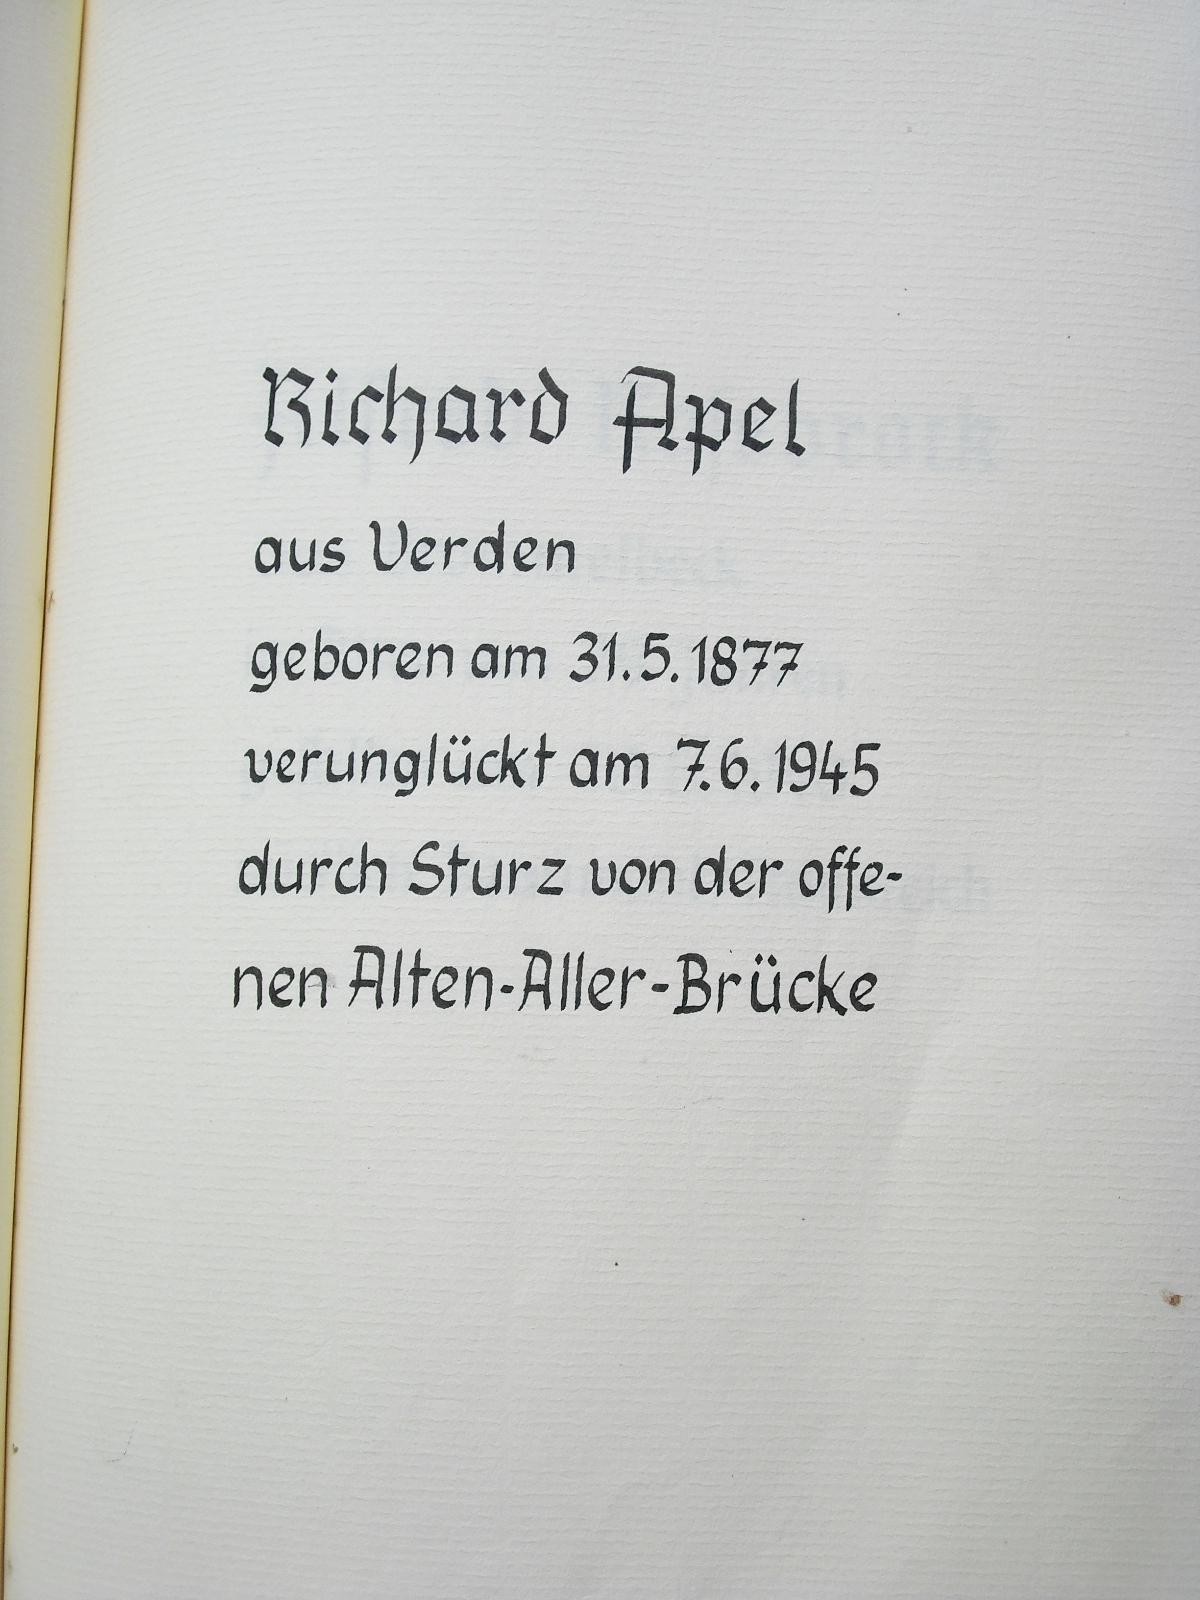 Richard Apel
aus Verden
geboren am 31.5.1877
verunglückt am 7.6.1945
durch Sturz von der offe-
nen Alten-Aller-Brücke